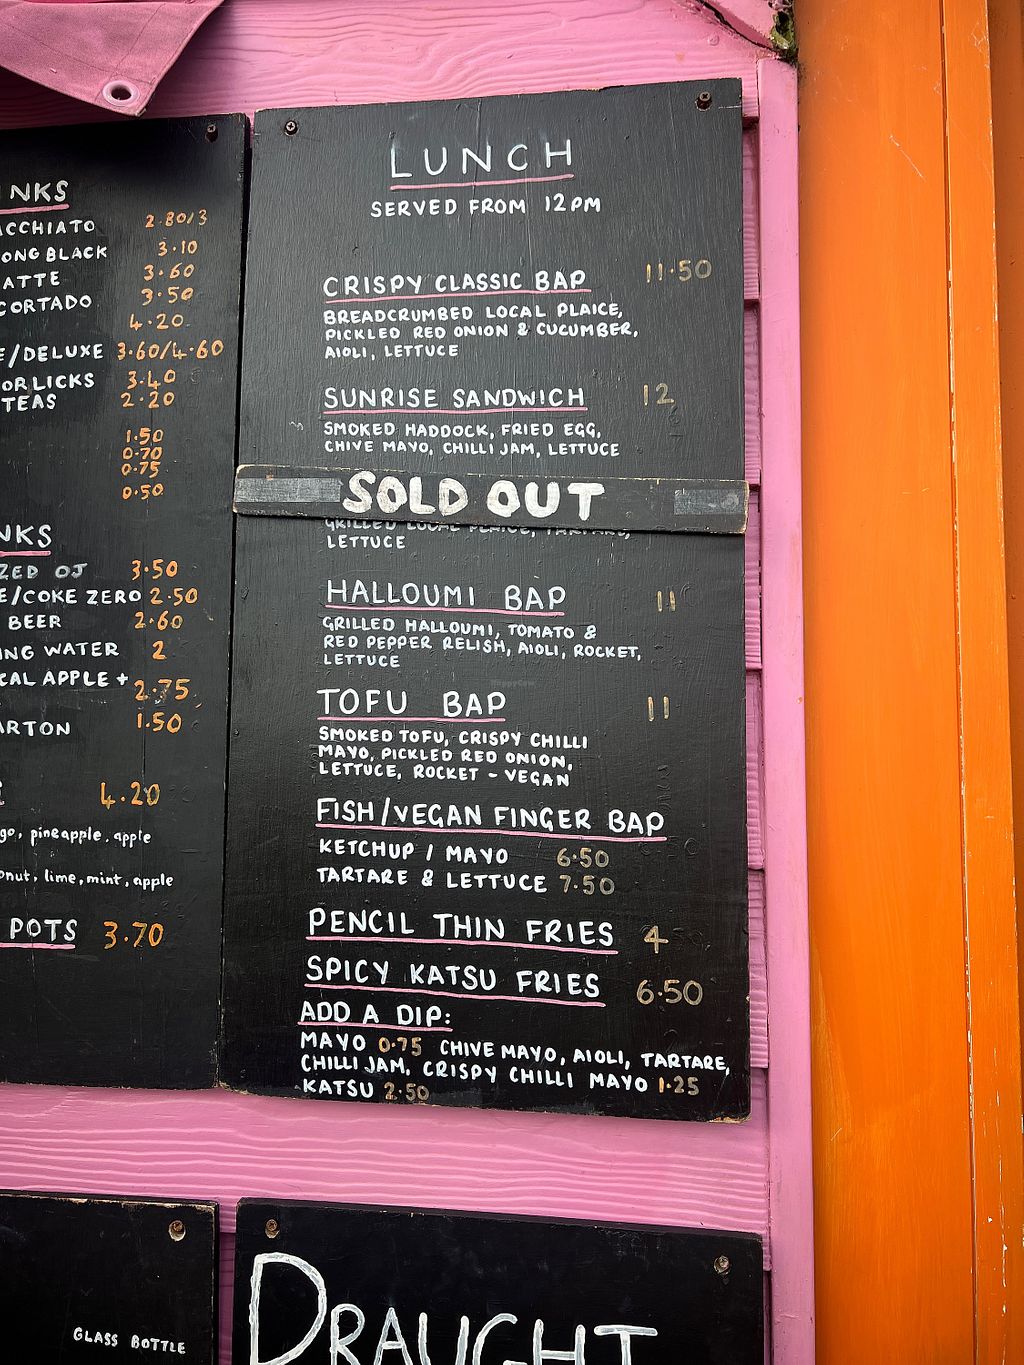 NKS
ACCHIATO 2.80/3
ONG BLACK 3.10
ATTE 3.60
CORTADO 3.50
4.20
E/DELUXE 3.60/4.60
ORLICKS 3.40
TEAS 2.20
1.50
0.70
0.75
0.50
NKS
ZED OJ 3.50
E/COKE ZERO 2.50
BEER 2.60
ING WATER 2
CAL APPLE + 2.75
ARTON 1.50
4.20
go, pineapple, apple
onut, lime, mint, apple
POTS 3.70
LUNCH
SERVED FROM 12PM
CRISPY CLASSIC BAP 11.50
BREADCRUMBED LOCAL PLAICE,
PICKLED RED ONION & CUCUMBER,
AIOLI, LETTUCE
SUNRISE SANDWICH 12
SMOKED HADDOCK, FRIED EGG,
CHIVE MAYO, CHILLI JAM, LETTUCE
SOLD OUT
GRILLED LOCAL PLAICE, TARTARE,
LETTUCE
HALLOUMI BAP 11
GRILLED HALLOUMI, TOMATO &
RED PEPPER RELISH, AIOLI, ROCKET,
LETTUCE
TOFU BAP 11
SMOKED TOFU, CRISPY CHILLI
MAYO, PICKLED RED ONION,
LETTUCE, ROCKET - VEGAN
FISH/VEGAN FINGER BAP
KETCHUP / MAYO 6.50
TARTARE & LETTUCE 7.50
PENCIL THIN FRIES 4
SPICY KATSU FRIES 6.50
ADD A DIP:
MAYO 0.75 CHIVE MAYO, AIOLI, TARTARE,
CHILLI JAM, CRISPY CHILLI MAYO 1.25
KATSU 2.50
GLASS BOTTLE
DRAUGHT